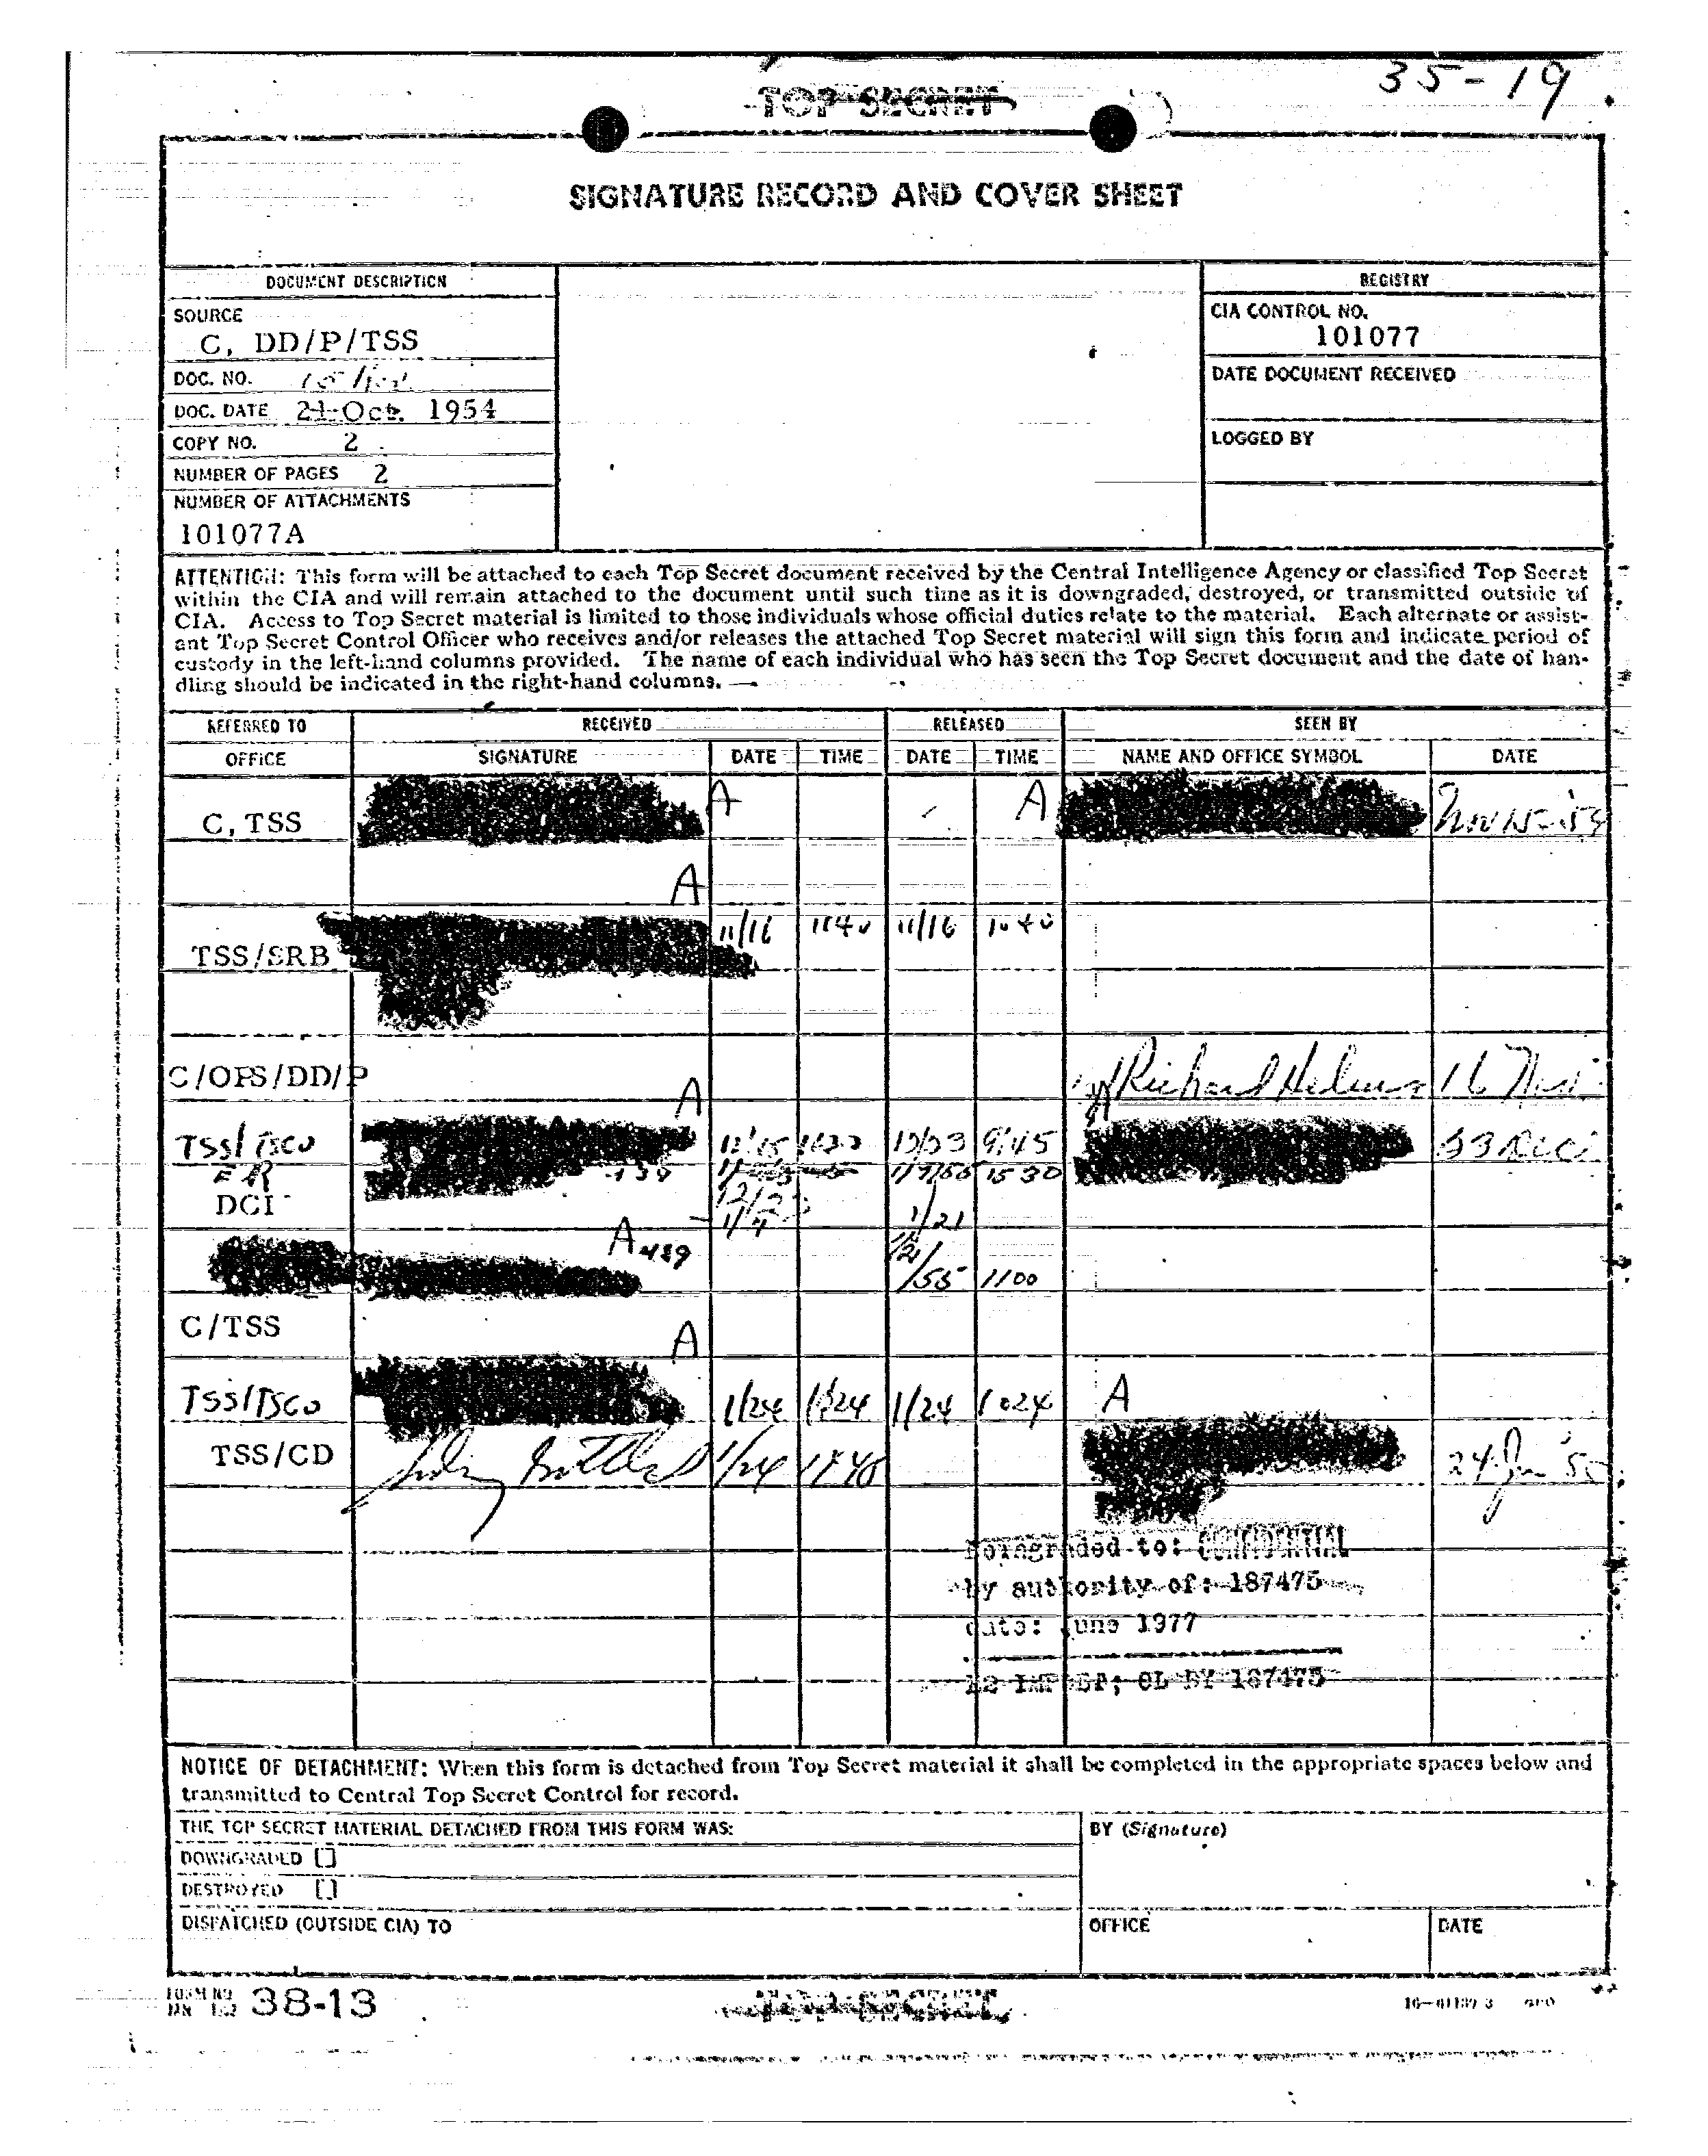 35-19
TOP SECRET
SIGNATURE RECORD AND COVER SHEET
DOCUMENT DESCRIPTION
REGISTRY
SOURCE
C, DD/P/TSS
CIA CONTROL NO.
101077
DOC. NO.
DATE DOCUMENT RECEIVED
DOC. DATE 21 Oct. 1954
COPY NO. 2
LOGGED BY
NUMBER OF PAGES 2
NUMBER OF ATTACHMENTS
101077A
ATTENTION: This form will be attached to each Top Secret document received by the Central Intelligence Agency or classified Top Secret
within the CIA and will remain attached to the document until such time as it is downgraded, destroyed, or transmitted outside of
CIA. Access to Top Secret material is limited to those individuals whose official duties relate to the material. Each alternate or assist-
ant Top Secret Control Officer who receives and/or releases the attached Top Secret material will sign this form and indicate period of
custody in the left-hand columns provided. The name of each individual who has seen the Top Secret document and the date of han-
dling should be indicated in the right-hand columns.
REFERRED TO RECEIVED RELEASED SEEN BY
OFFICE SIGNATURE DATE TIME DATE TIME NAME AND OFFICE SYMBOL DATE
C, TSS A A
A
TSS/SRB 11/16 1140 11/16 1040
C/OPS/DD/P Richard Helms 16 Nov
A
TSS/TSCO 12/23 9:45 A
ER 1530
DCI 1/4 1/21
A 1/21/55 1100
C/TSS
A
TSS/TSCO 1/24 1/24 1024 A
TSS/CD 1/24 24 Jan '55
Downgraded to: CONFIDENTIAL
by authority of: 187475
date: June 1977
E2 IMPDET; CL BY 187475
NOTICE OF DETACHMENT: When this form is detached from Top Secret material it shall be completed in the appropriate spaces below and
transmitted to Central Top Secret Control for record.
THE TOP SECRET MATERIAL DETACHED FROM THIS FORM WAS:
BY (Signature)
DOWNGRADED [ ]
DESTROYED [ ]
DISPATCHED (OUTSIDE CIA) TO
OFFICE DATE
FORM NO.
38-13
TOP SECRET